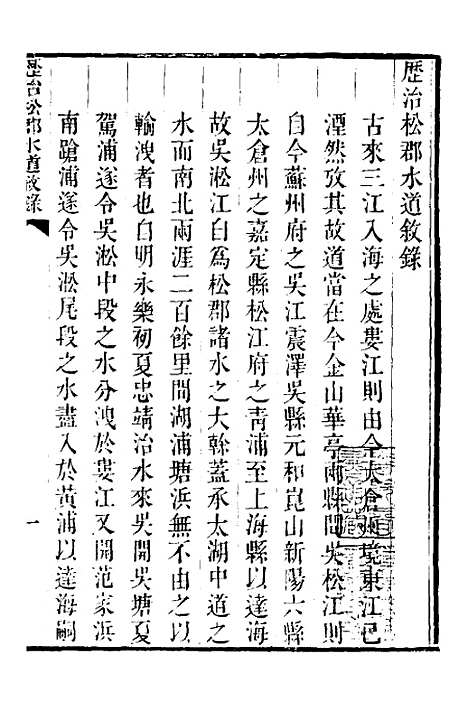 歷治松郡水道敘錄
古來三江入海之處婁江則由今太倉州境東江已
湮然攷其故道當在今金山華亭兩縣間吳松江則
自今蘇州府之吳江震澤吳縣元和崑山新陽六縣
太倉州之嘉定縣松江府之青浦至上海縣以達海
故吳淞江自爲松郡諸水之大榦蓋承太湖中道之
水而南北兩涯二百餘里間湖浦塘浜無不由之以
輸洩者也自明永樂初夏忠靖治水來吳開吳塘夏
駕浦遂令吳淞中段之水分洩於婁江又開范家浜
南蹌浦遂令吳淞尾段之水盡入於黃浦以達海嗣
歷治松郡水道敘錄
一